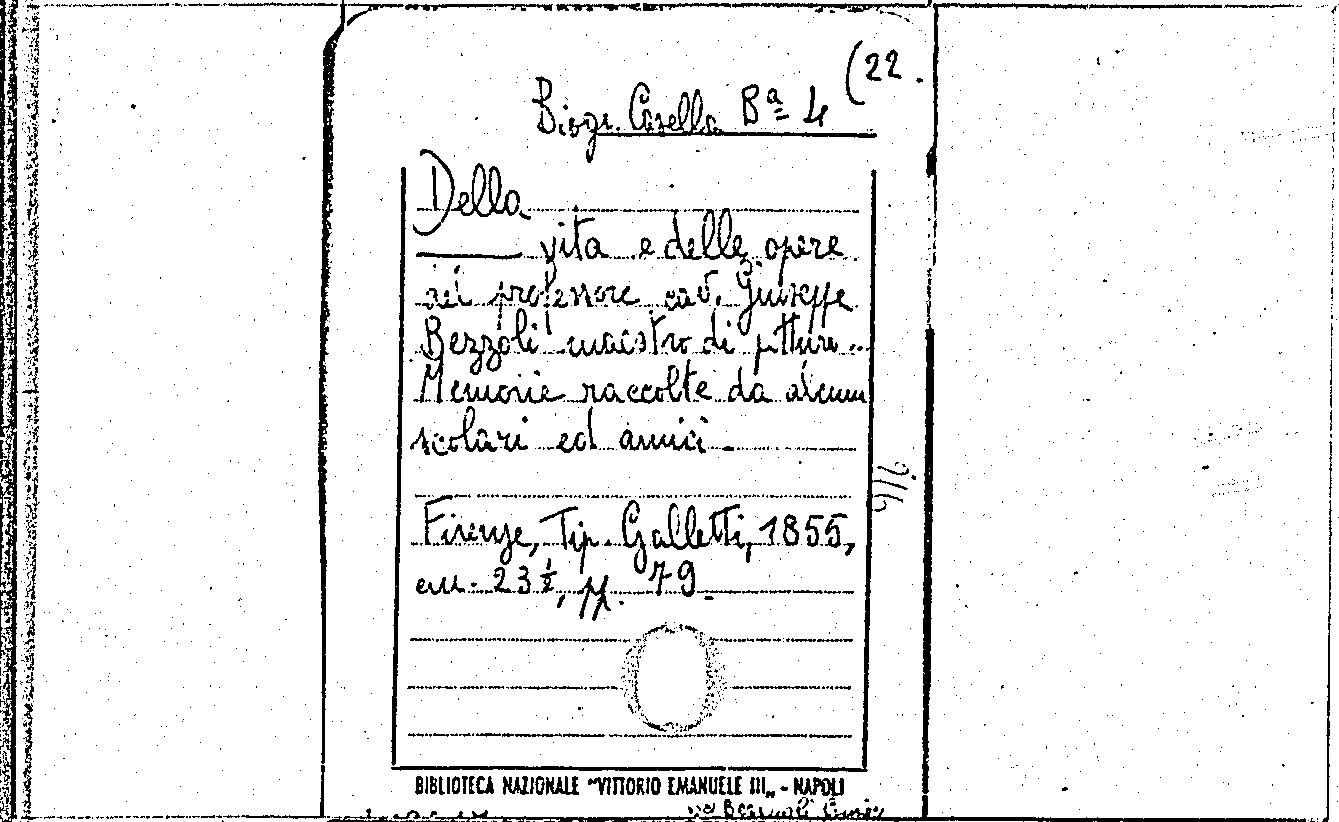 (22.
Biogr. Casella Bª 4
Della
vita e delle opere
del professore cav. Giuseppe
Bezzoli maestro di pittura..
Memorie raccolte da alcuni
scolari ed amici -
Firenze, Tip. Galletti, 1855,
cm. 23 ½, pp. 79_
BIBLIOTECA NAZIONALE "VITTORIO EMANUELE III„ - NAPOLI